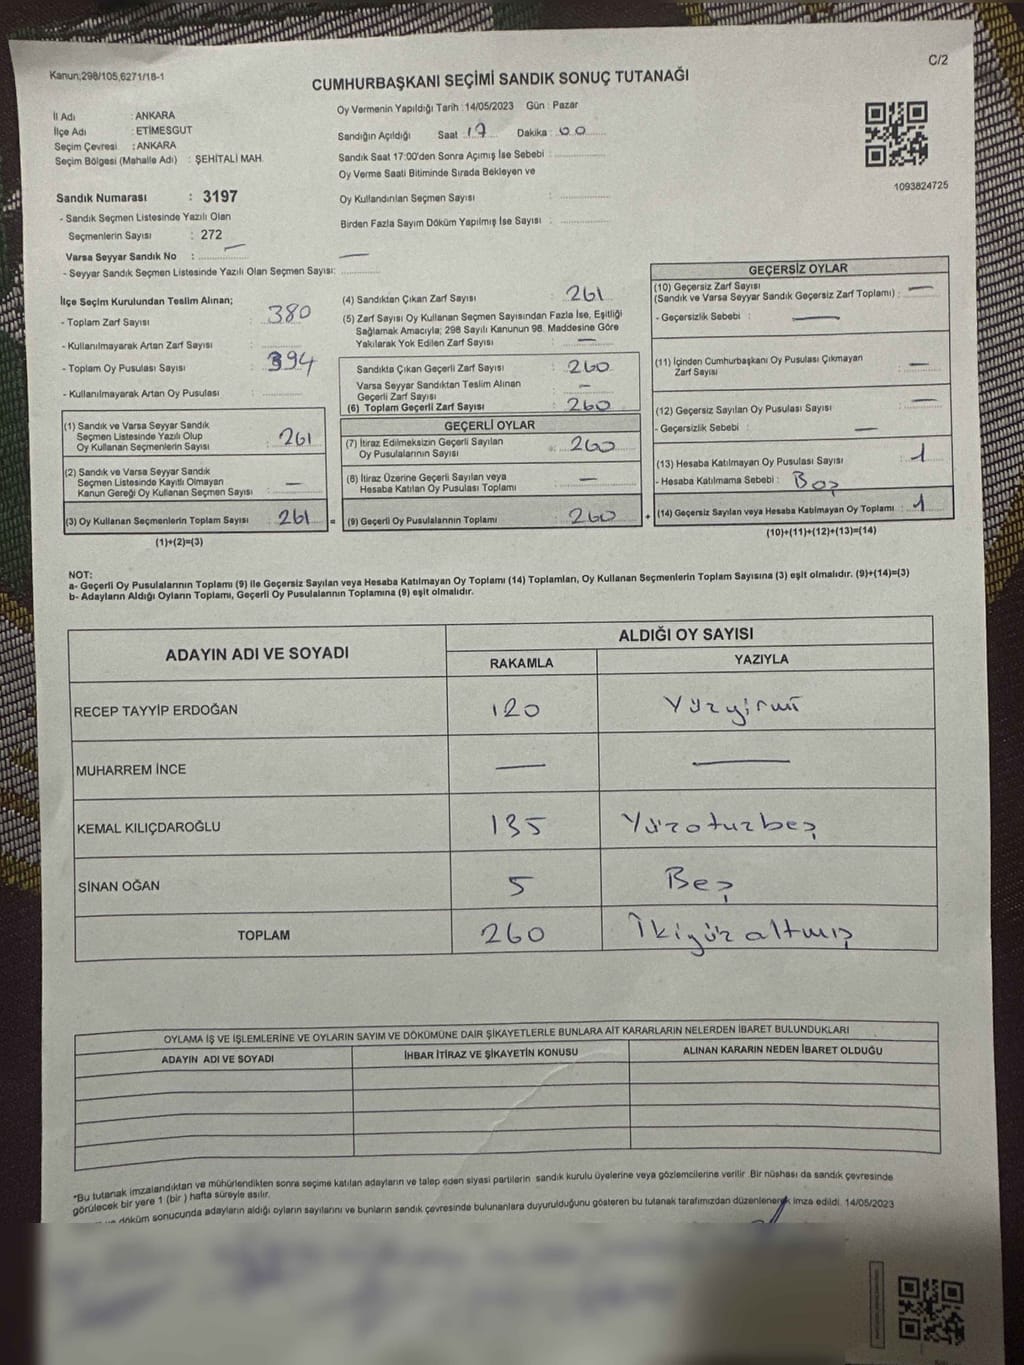 Kanun;298/105,6271/18-1
C/2
CUMHURBAŞKANI SEÇİMİ SANDIK SONUÇ TUTANAĞI
İl Adı : ANKARA
İlçe Adı : ETİMESGUT
Seçim Çevresi : ANKARA
Seçim Bölgesi (Mahalle Adı) : ŞEHİTALİ MAH.
Sandık Numarası : 3197
- Sandık Seçmen Listesinde Yazılı Olan
Seçmenlerin Sayısı : 272
Varsa Seyyar Sandık No : —
- Seyyar Sandık Seçmen Listesinde Yazılı Olan Seçmen Sayısı: —
Oy Vermenin Yapıldığı Tarih : 14/05/2023 Gün : Pazar
Sandığın Açıldığı Saat : 17 Dakika : 00
Sandık Saat 17:00'den Sonra Açımış İse Sebebi :
Oy Verme Saati Bitiminde Sırada Bekleyen ve
Oy Kullandırılan Seçmen Sayısı :
Birden Fazla Sayım Döküm Yapılmış İse Sayısı :
1093824725
İlçe Seçim Kurulundan Teslim Alınan;
- Toplam Zarf Sayısı : 380
- Kullanılmayarak Artan Zarf Sayısı :
- Toplam Oy Pusulası Sayısı : 394
- Kullanılmayarak Artan Oy Pusulası :
(1) Sandık ve Varsa Seyyar Sandık
Seçmen Listesinde Yazılı Olup
Oy Kullanan Seçmenlerin Sayısı : 261
(2) Sandık ve Varsa Seyyar Sandık
Seçmen Listesinde Kayıtlı Olmayan
Kanun Gereği Oy Kullanan Seçmen Sayısı : —
(3) Oy Kullanan Seçmenlerin Toplam Sayısı : 261
(1)+(2)=(3)
(4) Sandıktan Çıkan Zarf Sayısı : 261
(5) Zarf Sayısı Oy Kullanan Seçmen Sayısından Fazla İse, Eşitliği
Sağlamak Amacıyla; 298 Sayılı Kanunun 98. Maddesine Göre
Yakılarak Yok Edilen Zarf Sayısı : —
Sandıkta Çıkan Geçerli Zarf Sayısı : 260
Varsa Seyyar Sandıktan Teslim Alınan
Geçerli Zarf Sayısı : —
(6) Toplam Geçerli Zarf Sayısı : 260
GEÇERLİ OYLAR
(7) İtiraz Edilmeksizin Geçerli Sayılan
Oy Pusulalarının Sayısı : 260
(8) İtiraz Üzerine Geçerli Sayılan veya
Hesaba Katılan Oy Pusulası Toplamı : —
= (9) Geçerli Oy Pusulalarının Toplamı : 260
GEÇERSİZ OYLAR
(10) Geçersiz Zarf Sayısı
(Sandık ve Varsa Seyyar Sandık Geçersiz Zarf Toplamı) : —
- Geçersizlik Sebebi : —
(11) İçinden Cumhurbaşkanı Oy Pusulası Çıkmayan
Zarf Sayısı : —
(12) Geçersiz Sayılan Oy Pusulası Sayısı : —
- Geçersizlik Sebebi : —
(13) Hesaba Katılmayan Oy Pusulası Sayısı : 1
- Hesaba Katılmama Sebebi : Boş
+ (14) Geçersiz Sayılan veya Hesaba Katılmayan Oy Toplamı : 1
(10)+(11)+(12)+(13)=(14)
NOT:
a- Geçerli Oy Pusulalarının Toplamı (9) ile Geçersiz Sayılan veya Hesaba Katılmayan Oy Toplamı (14) Toplamları, Oy Kullanan Seçmenlerin Toplam Sayısına (3) eşit olmalıdır. (9)+(14)=(3)
b- Adayların Aldığı Oyların Toplamı, Geçerli Oy Pusulalarının Toplamına (9) eşit olmalıdır.
ADAYIN ADI VE SOYADI
ALDIĞI OY SAYISI
RAKAMLA YAZIYLA
RECEP TAYYİP ERDOĞAN 120 Yüzyirmi
MUHARREM İNCE — —
KEMAL KILIÇDAROĞLU 135 Yüzotuzbeş
SİNAN OĞAN 5 Beş
TOPLAM 260 İkiyüz altmış
OYLAMA İŞ VE İŞLEMLERİNE VE OYLARIN SAYIM VE DÖKÜMÜNE DAİR ŞİKAYETLERLE BUNLARA AİT KARARLARIN NELERDEN İBARET BULUNDUKLARI
ADAYIN ADI VE SOYADI İHBAR İTİRAZ VE ŞİKAYETİN KONUSU ALINAN KARARIN NEDEN İBARET OLDUĞU
*Bu tutanak imzalandıktan ve mühürlendikten sonra seçime katılan adayların ve talep eden siyasi partilerin sandık kurulu üyelerine veya gözlemcilerine verilir. Bir nüshası da sandık çevresinde
görülecek bir yere 1 (bir ) hafta süreyle asılır.
ve döküm sonucunda adayların aldığı oyların sayılarını ve bunların sandık çevresinde bulunanlara duyurulduğunu gösteren bu tutanak tarafımızdan düzenlenerek imza edildi. 14/05/2023